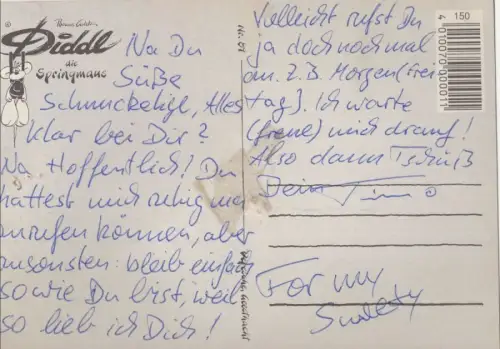 Diddl
die
Springmaus
Na Du
Süße
Schnuckelige, Alles
klar bei Dir?
Na Hoffentlich! Du
hättest mich ruhig mal
anrufen können, aber
ansonsten: bleib einfach
so wie Du bist, weil
so lieb ich Dich!
Vielleicht rufst Du
ja doch noch mal
an. Z.B. Morgen (Frei
tag). Ich warte
(freue) mich drauf!
Also dann Tschüß
Dein Timo
For my
Sweety
150
4 010070 000011